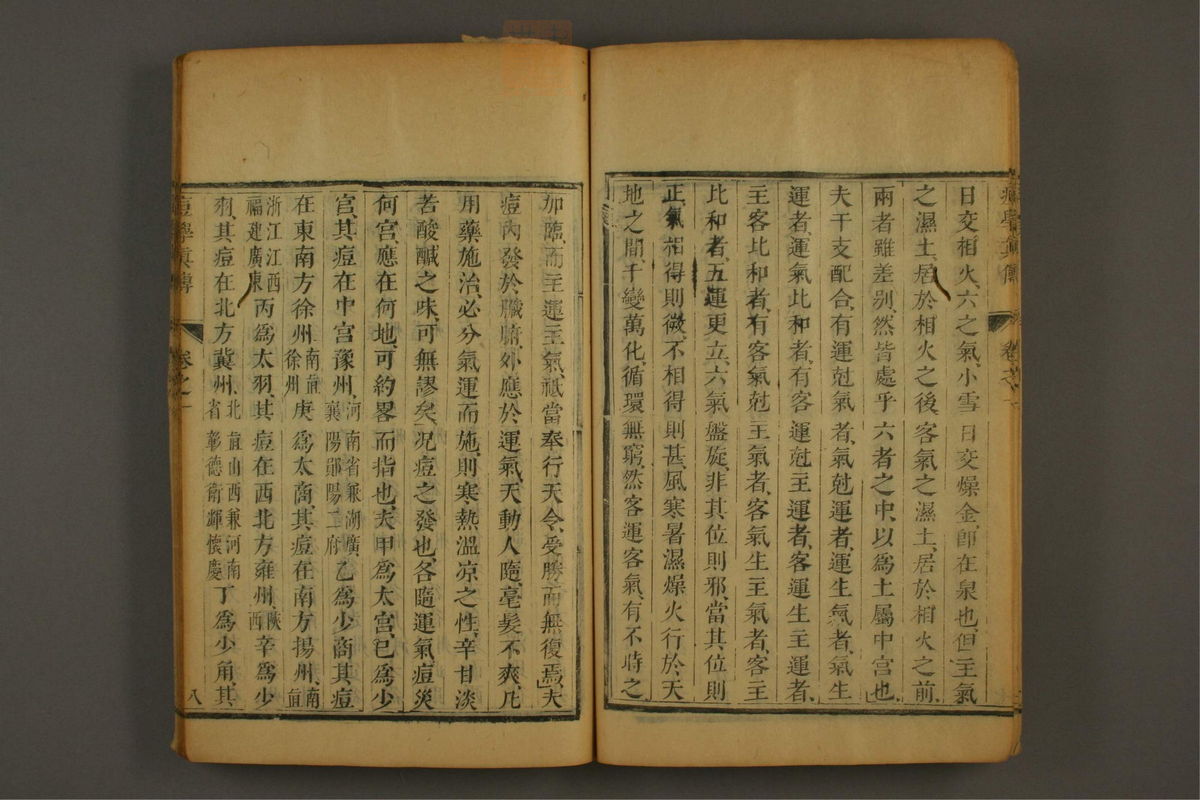 日交相火、六之氣、小雪日交燥金、卽在泉也、但主氣
之濕土、居於相火之後、客氣之濕土、居於相火之前、
兩者雖差别、然皆處乎六者之中、以爲土屬中宮也、
夫干支配合、有運尅氣者、氣尅運者、運生氣者、氣生
運者、運氣比和者、有客運尅主運者、客運生主運者、
主客比和者、有客氣尅主氣者、客氣生主氣者、客主
比和者、五運更立、六氣盤旋、非其位則邪、當其位則
正、氣相得則微、不相得則甚、風寒暑濕燥火行於天
地之間、千變萬化、循環無窮、然客運客氣、有不時之
加臨、而主運主氣、祗當奉行天令、受勝而無復焉、夫
痘內發於臟腑、外應於運氣、天動人隨、毫髮不爽、凡
用藥施治、必分氣運而施、則寒熱溫凉之性、辛甘淡
苦酸鹹之味、可無謬矣、况痘之發也、各隨運氣、痘災
何宮、應在何地、可約畧而指也、夫甲爲太宮、巳爲少
宮、其痘在中宮豫州、河南省兼湖廣襄陽鄖陽二府乙爲少商、其痘
在東南方徐州、南直徐州庚爲太商、其痘在南方揚州、南直
浙江江西福建廣東丙爲太羽、其痘在西北方雍州、陝西辛爲少
羽、其痘在北方冀州、北直山西兼河南省彰德衛輝懷慶丁爲少角、其
痘學眞傳
卷之一
八